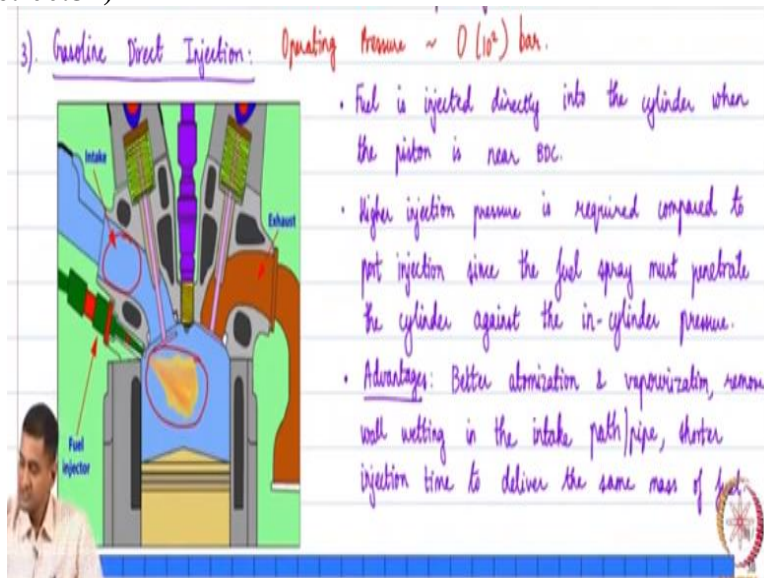 3). Gasoline Direct Injection: Operating Pressure ~ O(10²) bar.
Intake
Exhaust
Fuel
injector
• Fuel is injected directly into the cylinder when
the piston is near BDC.
• Higher injection pressure is required compared to
port injection since the fuel spray must penetrate
the cylinder against the in-cylinder pressure.
• Advantages: Better atomization & vapourization, remove
wall wetting in the intake path/pipe, shorter
injection time to deliver the same mass of fuel